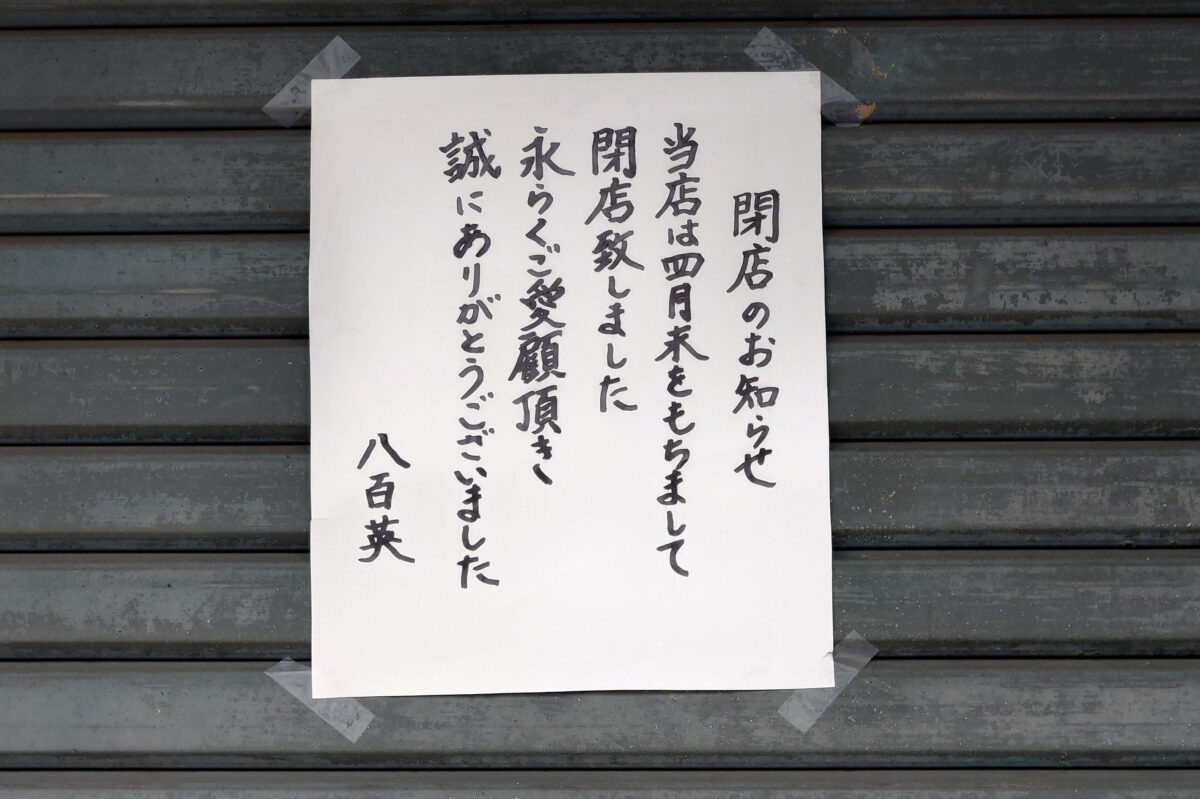 閉店のお知らせ
当店は四月末をもちまして
閉店致しました
永らくご愛顧頂き
誠にありがとうございました
八百英